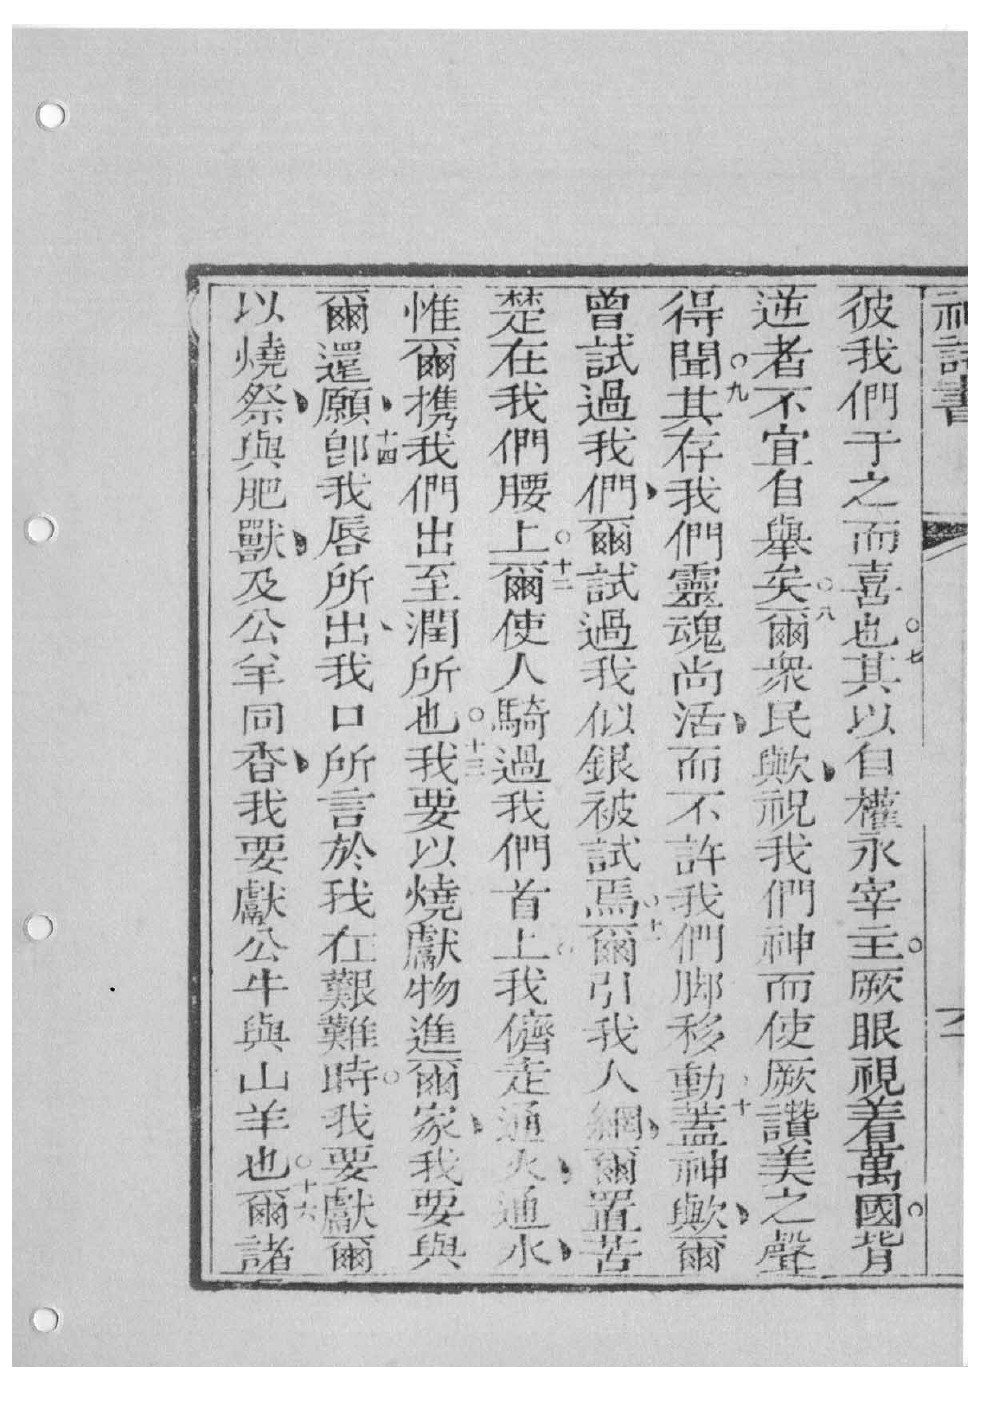 神詩書
彼我們于之而喜也○七其以自權永宰主○厥眼視着萬國○背
逆者不宜自舉矣○八爾眾民歟祝我們神而使厥讚美之聲
得聞○九其存我們靈魂尚活而不許我們脚移動○十蓋神歟爾
曾試過我們爾試過我似銀被試焉○十一爾引我入網爾置苦
楚在我們腰上○十二爾使人騎過我們首上○我儕走通火通水
惟爾携我們出至潤所也○十三我要以燒獻物進爾家我要與
爾還願十四卽我唇所出我口所言於我在艱難時○我要獻爾
以燒祭與肥獸及公羊同香我要獻公牛與山羊也○十六爾諸